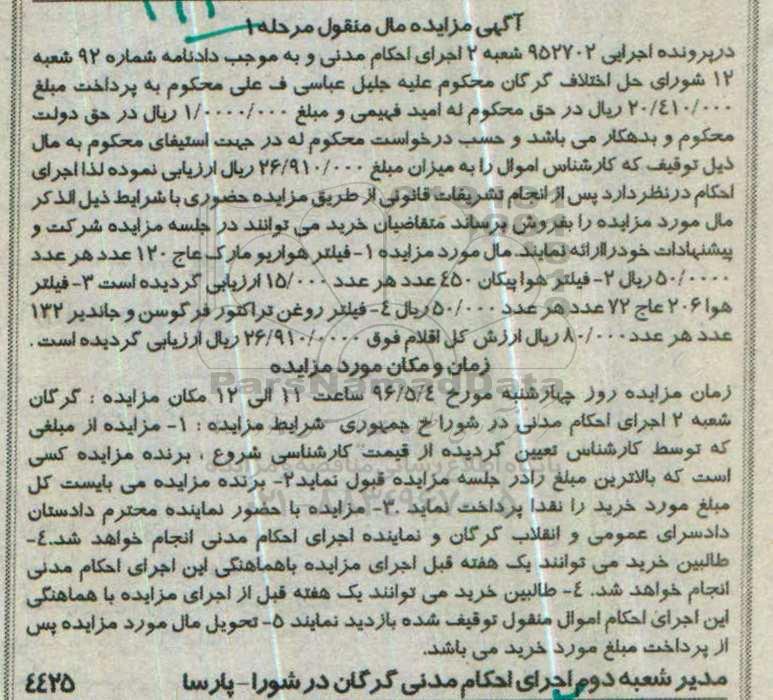 آگهی مزایده مال منقول مرحله ۱
درپرونده اجرایی ۹۵۲۷۰۲ شعبه ۲ اجرای احکام مدنی و به موجب دادنامه شماره ۹۲ شعبه
۱۲ شورای حل اختلاف گرگان محکوم علیه جلیل عباسی ف علی محکوم به پرداخت مبلغ
۲۰/٤۱۰/۰۰۰ ریال در حق محکوم له امید فهیمی و مبلغ ۱/۰۰۰۰/۰۰۰ ریال در حق دولت
محکوم و بدهکار می باشد و حسب درخواست محکوم له در جهت استیفای محکوم به مال
ذیل توقیف که کارشناس اموال را به میزان مبلغ ۲۶/۹۱۰/۰۰۰ ریال ارزیابی نموده لذا اجرای
احکام درنظر دارد پس از انجام تشریفات قانونی از طریق مزایده حضوری با شرایط ذیل الذکر
مال مورد مزایده را بفروش برساند متقاضیان خرید می توانند در جلسه مزایده شرکت و
پیشنهادات خود را ارائه نمایند. مال مورد مزایده ۱- فیلتر هواریو مارک عاج ۱۲۰ عدد هر عدد
۵۰/۰۰۰۰ ریال ۲- فیلتر هوا پیکان ٤۵۰ عدد هر عدد ۱۵/۰۰۰ ارزیابی گردیده است ۳- فیلتر
هوا ۲۰۶ عاج ۷۲ عدد هر عدد ۵۰/۰۰۰ ریال ٤- فیلتر روغن تراکتور فرگوسن و جاندیر ۱۳۲
عدد هر عدد ۸۰/۰۰۰ ریال ارزش کل اقلام فوق ۲۶/۹۱۰/۰۰۰۰ ریال ارزیابی گردیده است.
زمان و مکان مورد مزایده
زمان مزایده روز چهارشنبه مورخ ۹۶/۵/٤ ساعت ۱۱ الی ۱۲ مکان مزایده : گرگان
شعبه ۲ اجرای احکام مدنی در شورا خ جمهوری شرایط مزایده : ۱- مزایده از مبلغی
که توسط کارشناس تعیین گردیده از قیمت کارشناسی شروع ، برنده مزایده کسی
است که بالاترین مبلغ رادر جلسه مزایده قبول نماید۲- برنده مزایده می بایست کل
مبلغ مورد خرید را نقدا پرداخت نماید .۳- مزایده با حضور نماینده محترم دادستان
دادسرای عمومی و انقلاب گرگان و نماینده اجرای احکام مدنی انجام خواهد شد.٤-
طالبین خرید می توانند یک هفته قبل اجرای مزایده باهماهنگی این اجرای احکام مدنی
انجام خواهد شد. ٤- طالبین خرید می توانند یک هفته قبل از اجرای مزایده با هماهنگی
این اجرای احکام اموال منقول توقیف شده بازدید نمایند ۵- تحویل مال مورد مزایده پس
از پرداخت مبلغ مورد خرید می باشد.
مدیر شعبه دوم اجرای احکام مدنی گرگان در شورا- پارسا ٤٤۲۵
ParsNamadData